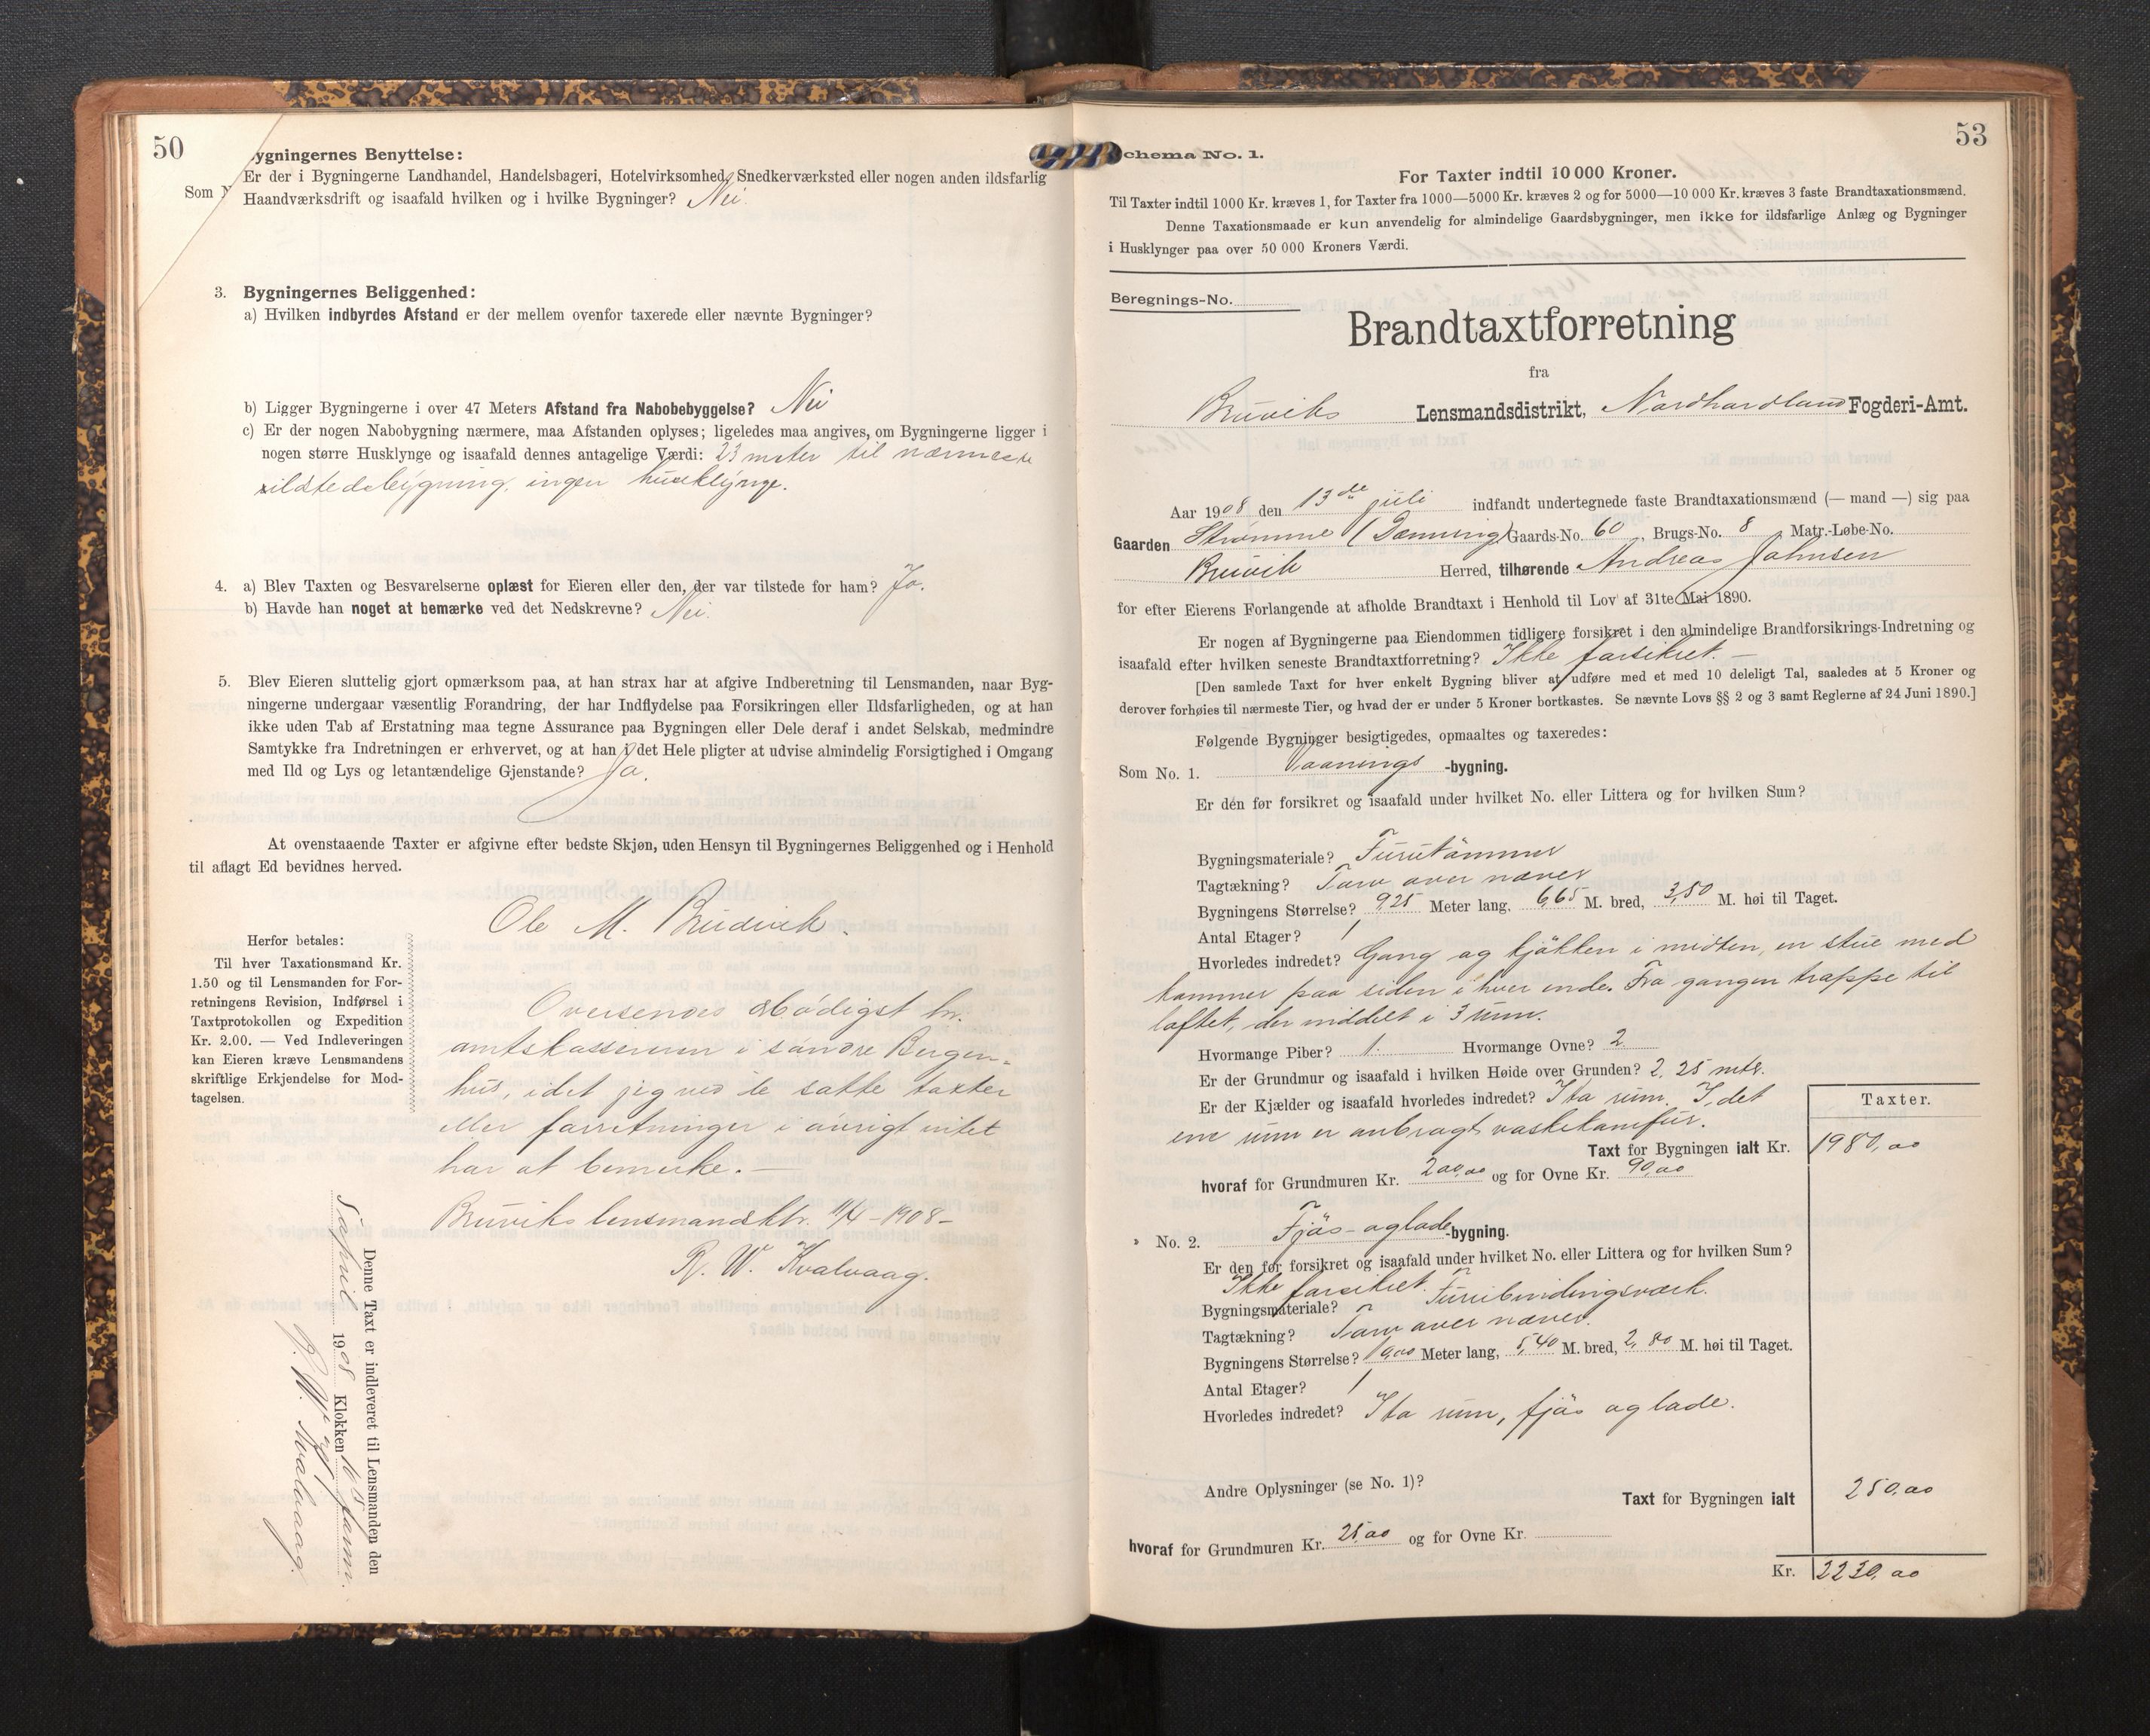 50
ygningernes Benyttelse:
Er der i Bygningerne Landhandel, Handelsbageri, Hotelvirksomhed, Snedkerværksted eller nogen anden ildsfarlig
Som N
Haandværksdrift og isaafald hvilken og i hvilke Bygninger? Nei.
3. Bygningernes Beliggenhed:
a) Hvilken indbyrdes Afstand er der mellem ovenfor taxerede eller nævnte Bygninger?
b) Ligger Bygningerne i over 47 Meters Afstand fra Nabobebyggelse? Nei
c) Er der nogen Nabobygning nærmere, maa Afstanden oplyses; ligeledes maa angives, om Bygningerne ligger i
nogen større Husklynge og isaafald dennes antagelige Værdi: 23 meter til nærmeste
ildstedsbygning, ingen husklynge.
4. a) Blev Taxten og Besvarelserne oplæst for Eieren eller den, der var tilstede for ham? Ja.
b) Havde han noget at bemærke ved det Nedskrevne? Nei.
5. Blev Eieren sluttelig gjort opmærksom paa, at han strax har at afgive Indberetning til Lensmanden, naar Byg-
ningerne undergaar væsentlig Forandring, der har Indflydelse paa Forsikringen eller Ildsfarligheden, og at han
ikke uden Tab af Erstatning maa tegne Assurance paa Bygningen eller Dele deraf i andet Selskab, medmindre
Samtykke fra Indretningen er erhvervet, og at han i det Hele pligter at udvise almindelig Forsigtighed i Omgang
med Ild og Lys og letantændelige Gjenstande? Ja.
At ovenstaaende Taxter er afgivne efter bedste Skjøn, uden Hensyn til Bygningernes Beliggenhed og i Henhold
til aflagt Ed bevidnes herved.
Ole M. Brudvik.
Herfor betales:
Til hver Taxationsmand Kr.
1.50 og til Lensmanden for For-
retningens Revision, Indførsel i
Taxtprotokollen og Expedition
Kr. 2.00. — Ved Indleveringen
kan Eieren kræve Lensmandens
skriftlige Erkjendelse for Mod-
tagelsen.
Oversendes ærbødigst hr.
amtskassereren i søndre Bergen-
hus, idet jeg ved de satte taxter
eller forretninger i øvrigt intet
har at bemerke. —
Bruviks lensmandsktr. 11/4 - 1908 -
R. W. Kvalvaag.
Denne Taxt er indleveret til Lensmanden den
5 april 1908 Klokken 10 form.
R. W. Kvalvaag.
53
chema No. 1.
For Taxter indtil 10 000 Kroner.
Til Taxter indtil 1000 Kr. kræves 1, for Taxter fra 1000—5000 Kr. kræves 2 og for 5000—10 000 Kr. kræves 3 faste Brandtaxationsmænd.
Denne Taxationsmaade er kun anvendelig for almindelige Gaardsbygninger, men ikke for ildsfarlige Anlæg og Bygninger
i Husklynger paa over 50 000 Kroners Værdi.
Beregnings-No.
Brandtaxtforretning
fra
Bruviks Lensmandsdistrikt, Nordhordland Fogderi-Amt.
Aar 1908 den 13de juli indfandt undertegnede faste Brandtaxationsmænd (— mand —) sig paa
Gaarden Strømme (Dænning) Gaards-No. 60, Brugs-No. 8, Matr.-Løbe-No.
Bruvik Herred, tilhørende Andreas Johnsen
for efter Eierens Forlangende at afholde Brandtaxt i Henhold til Lov af 31te Mai 1890.
Er nogen af Bygningerne paa Eiendommen tidligere forsikret i den almindelige Brandforsikrings-Indretning og
isaafald efter hvilken seneste Brandtaxtforretning? Ikke forsikret. —
[Den samlede Taxt for hver enkelt Bygning bliver at udføre med et med 10 deleligt Tal, saaledes at 5 Kroner og
derover forhøies til nærmeste Tier, og hvad der er under 5 Kroner bortkastes. Se nævnte Lovs §§ 2 og 3 samt Reglerne af 24 Juni 1890.]
Følgende Bygninger besigtigedes, opmaaltes og taxeredes:
Som No. 1. Vaanings -bygning.
Er den før forsikret og isaafald under hvilket No. eller Littera og for hvilken Sum?
Bygningsmateriale? Furutømmer
Tagtækning? Torv over næver
Bygningens Størrelse? 9,25 Meter lang, 6,65 M. bred, 3,50 M. høi til Taget.
Antal Etager? 1
Hvorledes indredet? Gang og kjøkken i midten, en stue med
kammer paa siden i hver ende. Fra gangen trappe til
loftet, der inddelt i 3 rum.
Hvormange Piber? 1. Hvormange Ovne? 2
Er der Grundmur og isaafald i hvilken Høide over Grunden? 2,25 mtr.
Er der Kjælder og isaafald hvorledes indredet? I to rum. I det
ene rum er anbragt vaskekomfur.
Taxter.
Taxt for Bygningen ialt Kr. 1980,00
hvoraf for Grundmuren Kr. 200,00 og for Ovne Kr. 90,00
" No. 2. Fjøs- og lade -bygning.
Er den før forsikret og isaafald under hvilket No. eller Littera og for hvilken Sum?
Ikke forsikret.
Bygningsmateriale? Furubindingsværk.
Tagtækning? Torv over næver.
Bygningens Størrelse? 9,00 Meter lang, 5,40 M. bred, 2,80 M. høi til Taget.
Antal Etager? 1
Hvorledes indredet? I to rum, fjøs og lade.
Andre Oplysninger (se No. 1)?
Taxt for Bygningen ialt 250,00
hvoraf for Grundmuren Kr. 25,00 og for Ovne Kr.
Kr. 2230,00